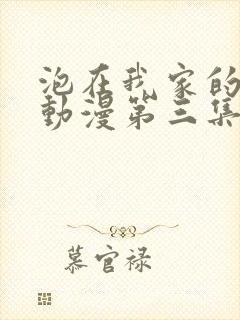 泡在我家的
動漫第三集
慕官禄